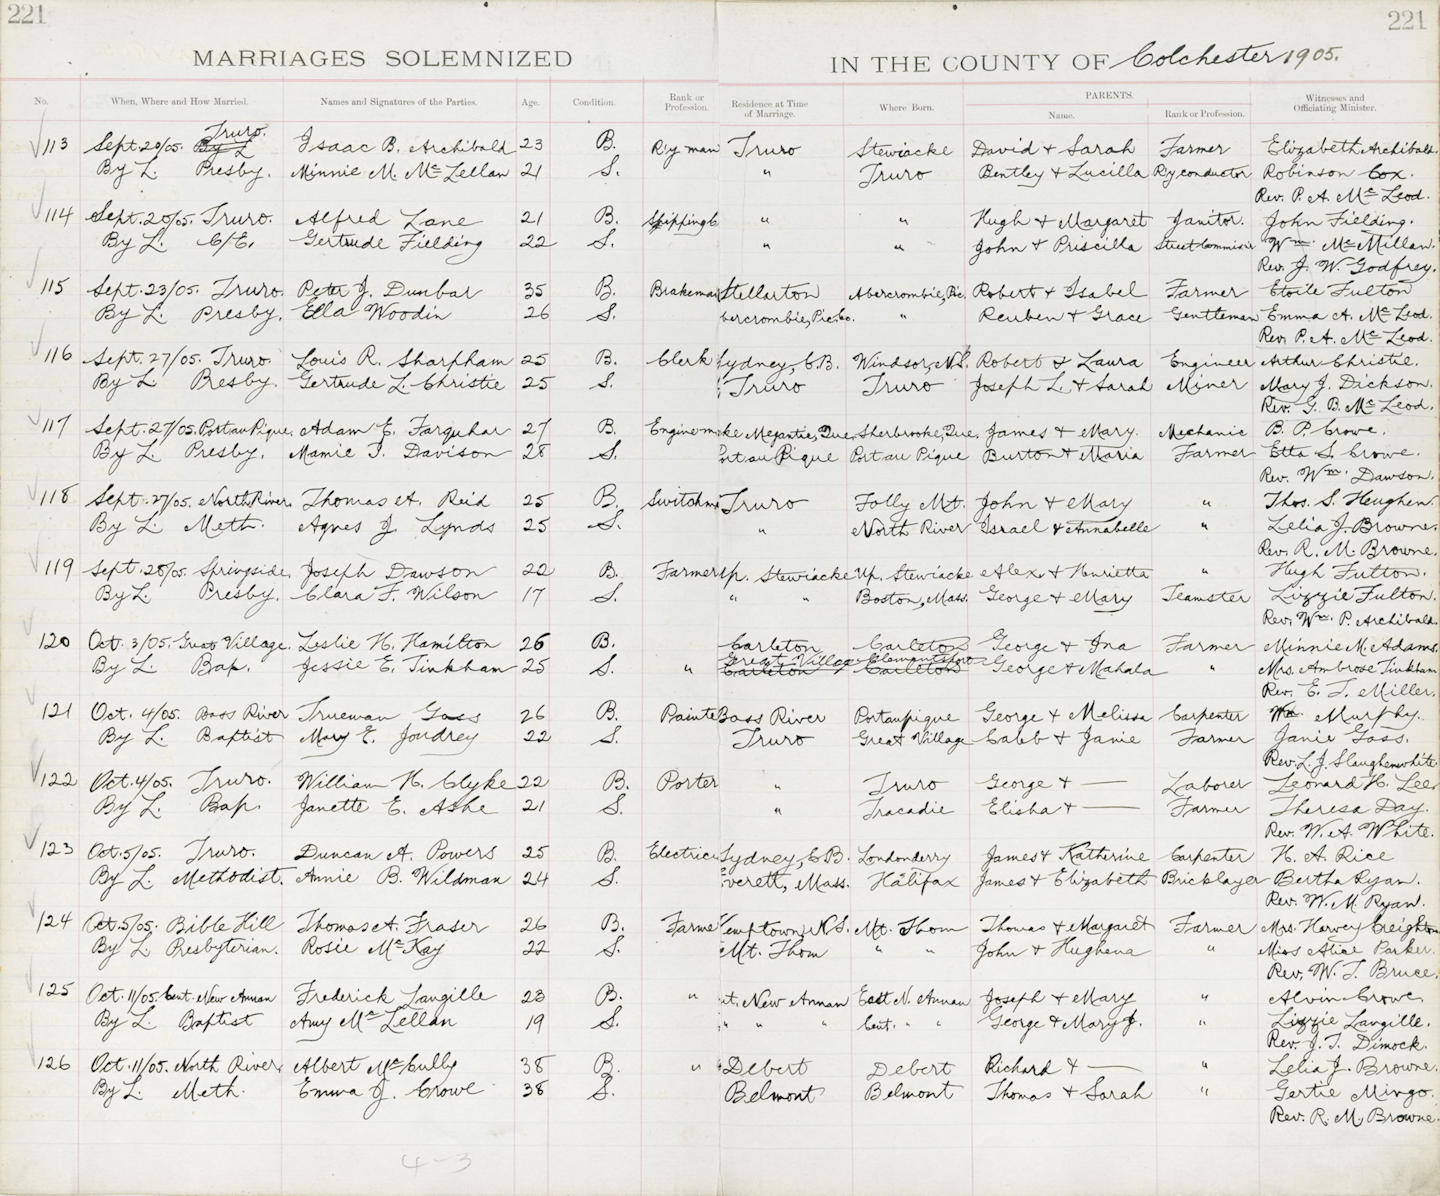 221 221
MARRIAGES SOLEMNIZED IN THE COUNTY OF Colchester 1905.
No. When, Where and How Married. Names and Signatures of the Parties. Age. Condition. Rank or Profession. Residence at Time of Marriage. Where Born. PARENTS. Name. Rank or Profession. Witnesses and Officiating Minister.
113 Sept 20/05. Truro. Isaac B. Archibald 23 B. R'y man Truro Stewiacke David + Sarah Farmer Elizabeth Archibald.
By L Presby. Minnie M. McLellan 21 S. " Truro Bentley + Lucilla Ry conductor Robinson Cox.
Rev. P. A. McLeod.
114 Sept. 20/05. Truro. Alfred Lane 21 B. Shipping C " " Hugh + Margaret Janitor. John Fielding.
By L. C/E. Gertrude Fielding 22 S. " " " John + Priscilla Street Commissir Wm McMillan.
Rev. J. W. Godfrey.
115 Sept. 23/05. Truro. Peter J. Dunbar 35 B. Brakeman Stellarton Abercrombie, Pic. Robert + Isabel Farmer Etoile Fulton
By L. Presby. Ella Woodin 26 S. bercrombie, Pic. Co. " Reuben + Grace Gentleman Emma A. McLeod.
Rev. P. A. McLeod.
116 Sept. 27/05. Truro. Louis R. Sharpham 25 B. Clerk Sydney, C.B. Windsor, N.S. Robert & Laura Engineer Arthur Christie.
By L. Presby. Gertrude L. Christie 25 S. Truro Truro Joseph L. & Sarah Miner Mary J. Dickson.
Rev. G. B. McLeod.
117 Sept. 27/05. Port au Pique. Adam E. Farquhar 27 B. Engine m ke Megantic, Que. Sherbrooke, Que. James + Mary. Mechanic B. P. Crowe.
By L. Presby. Mamie T. Davison 28 S. ort au Pique Port au Pique Burton + Maria Farmer Etta S. Crowe.
Rev. Wm Dawson.
118 Sept. 27/05. North River. Thomas A. Reid 25 B. Switchm Truro Folly Mt. John + Mary " Thos. S. Heughen.
By L Meth. Agnes J. Lynds 25 S. " North River Israel & Annabelle " Lelia J. Browne.
Rev. R. M. Browne.
119 Sept. 28/05. Springside. Joseph Dawson 22 B. Farmer Up. Stewiacke Up. Stewiacke Alex. + Henrietta " Hugh Fulton.
By L Presby. Clara F. Wilson 17 S. " " Boston, Mass. George + Mary Teamster Lizzie Fulton.
Rev. Wm. P. Archibald.
120 Oct. 3/05. Great Village. Leslie H. Hamilton 26 B. Carleton Carleton George + Ina Farmer Minnie M. Adams.
By L Bap. Jessie E. Tinkham 25 S. " Great Village Clementsport George + Mahala " Mrs. Ambrose Tinkham
Carleton Carleton
Rev. E. T. Miller.
121 Oct. 4/05. Bass River Trueman Gass 26 B. Painte Bass River Portaupique George + Melissa Carpenter Wm. Murphy.
By L. Baptist Mary E. Joudrey 22 S. Truro Great Village Caleb + Janie Farmer Janie Gass.
Rev. L. J. Slaughenwhite
122 Oct. 4/05. Truro. William H. Clyke 22 B. Porter " Truro George + — Laborer Leonard H. Lee.
By L. Bap. Janette E. Ashe 21 S. " Tracadie Elisha + — Farmer Theresa Day.
Rev. W. A. White.
123 Oct. 5/05. Truro. Duncan A. Powers 25 B. Electrici Sydney, C.B. Londonderry James + Katherine Carpenter H. A. Rice
By L. Methodist. Annie B. Wildman 24 S. verett, Mass. Halifax James + Elizabeth Bricklayer Bertha Ryan.
Rev. W. M. Ryan.
124 Oct. 5/05. Bible Hill Thomas A. Fraser 26 B. Farme Kemptown, N.S. Mt. Thom Thomas + Margaret Farmer Mrs. Harvey Creighton
By L Presbyterian. Rosie McKay 22 S. Mt. Thom " " John + Hughena " Miss Alice Parker.
Rev. W. T. Bruce.
125 Oct. 11/05. Cent. New Annan Frederick Langille 23 B. " t. New Annan East N. Annan Joseph + Mary " Alvin Crowe.
By L. Baptist Amy McLellan 19 S. " " " Cent. " " George + Mary J. " Lizzie Langille.
Rev. J. T. Dimock.
126 Oct. 11/05. North River. Albert McCully 38 B. " Debert Debert Richard + — " Lelia J. Browne.
By L. Meth. Emma J. Crowe 38 S. Belmont Belmont Thomas + Sarah " Gertie Mingo.
Rev. R. M. Browne.
4-3